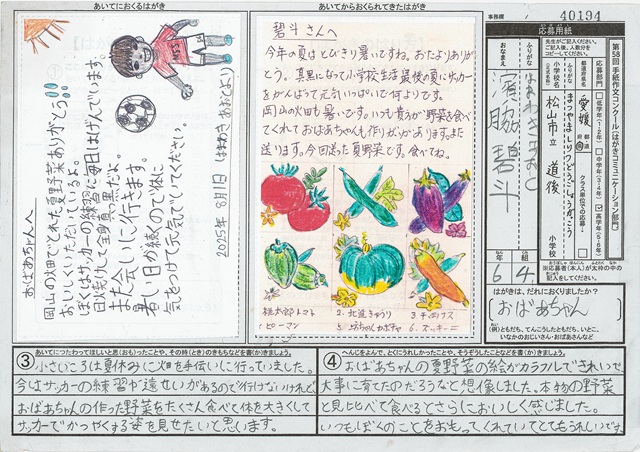 あいてにおくるはがき
おばあちゃんへ
岡山の畑でとれた夏野菜ありがとう!!
おいしくいただいているよ。
ぼくはサッカーの練習に毎日はげんでいます。
日火焼けして全身真っ黒だよ。
また会いに行きます。
暑い日が続くので体に
気をつけて元気でいてください。
2025年 8月1日 はまわき あおとより
あいてからおくられてきたはがき
碧斗さんへ
今年の夏はとびきり暑いですね。おたよりありが
とう。真黒になって小学校生活最後の夏にサッカー
をがんばって元気いっぱいで何よりです。
岡山の畑も暑いです。いつも貴方が野菜を食べ
てくれておばあちゃんも作りがいがあります。また
送ります。今回送った夏野菜です。食べてね。
桃太郎トマト
2.北進きゅうり
3.千両ナス
4.ピーマン
5.坊ちゃんカボチャ
6.ズッキーニ
事務欄
40194
応募用紙
先生がご記入ください。
ご記入後、人数分を
コピーしてください。
第58回 手紙作文コンクール(はがきコミュニケーション部門)
応募部門
低学年(1・2年)
中学年(3・4年)
高学年(5・6年)
クラス単位での応募
都道府県名
愛媛
都道府県
ふりがな
まつやましりつどうごしょうがっこう
小学校名
(公式名称)
松山市立 道後
小学校
ふりがな
はまわきあおと
おなまえ
濱脇 碧斗
年 組
6 4
※応募者(本人)が太枠の中の
記入をしてください。
はがきは、だれにおくりましたか?
(おばあちゃん)
(例)ともだち、てんこうしたともだち、いとこ、
いなかのおじいさん・おばあさんなど
③ あいてにつたわってほしいと思(おも)ったことや、その時(とき)のきもちなどを書(か)きましょう。
小さいころは夏休みに畑を手伝いに行っていました。
今はサッカーの練習や遠せいがあるので行けないけれど、
おばあちゃんの作った野菜をたくさん食べて体を大きくして
サッカーでかつやくする姿を見せたいと思います。
④ へんじをよんで、とくにうれしかったことや、そうぞうしたことなどを書(か)きましょう。
おばあちゃんの夏野菜の絵がカラフルできれいで
大事に育てたのだろうなと想像しました。本物の野菜
と見比べて食べるとさらにおいしく感じました。
いつもぼくのことをおもってくれていてとてもうれしいです。